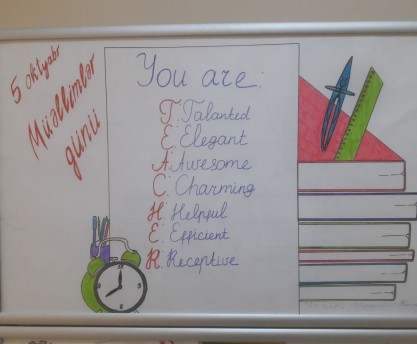 5 oktyabr
Müəllimlər
günü
You are:
T. Talanted
E. Elegant
A. Awesome
C. Charming
H. Helpful
E. Efficient
R. Receptive